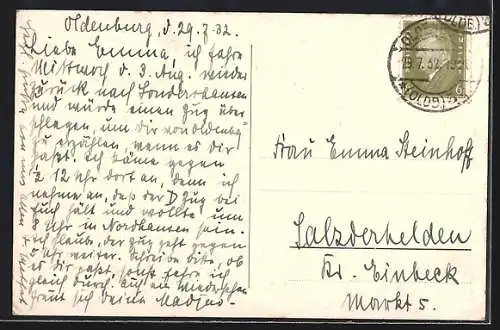 Oldenburg, d. 29.7.32.
Liebe Emma, ich fahre
Mittwoch d. 3. Aug. wieder
zurück nach Sondershausen
und würde einen Zug über
schlagen, um Dir von Oldenbg.
zu erzählen, wenn es dir
paßt. Ich käme gegen
½ 12 Uhr dort an, denn ich
nehme an, daß der D Zug bei
Euch hält und wollte um
Uhr in Nordhausen sein.
Ich glaube, der Zug geht gegen
5 Uhr weiter. Schreibe bitte, ob
es dir paßt, sonst fahre ich
gleich durch. Auf ein Wiedersehen
freut sich deine
Frau Emma Steinhoff
Salzderhelden
Kr. Einbeck
Markt 5.
(OLDB)
29.7.32
(OLDB)
6